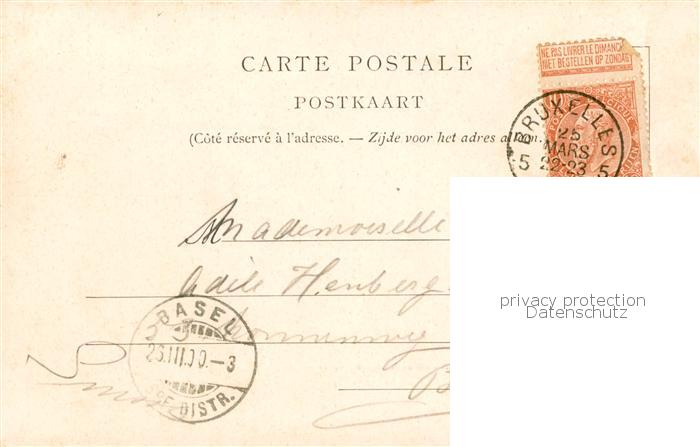 NE PAS LIVRER LE DIMANCHE
NIET BESTELLEN OP ZONDAG
CARTE POSTALE
POSTKAART
(Côté réservé à l'adresse. — Zijde voor het adres alleen.
BRUXELLES
25
MARS
22-23
5 5
Mademoiselle
Adèle Henberg
BASEL
26.III.00.-3
DISTR.
privacy protection
Datenschutz